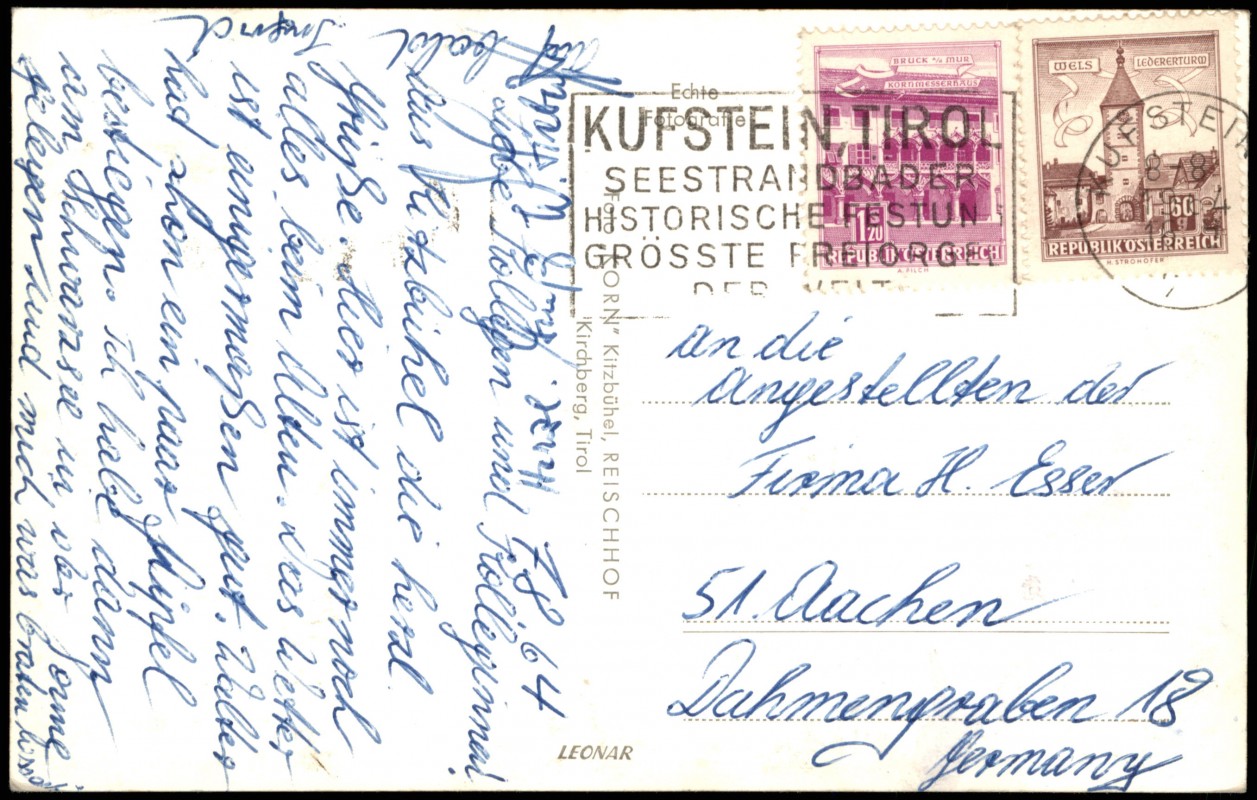 Echte
Fotografie
KUFSTEIN, TIROL
SEESTRANDBÄDER
HISTORISCHE FESTUN
GRÖSSTE FREIORGEL
DER WELT
BRUCK a/d MUR
KORNMESSERHAUS
1.20
REPUBLIK ÖSTERREICH
A. PILCH
WELS LEDERERTURM
1.50
REPUBLIK ÖSTERREICH
H. STROHOFER
KUFSTEIN
An die
Angestellten der
Firma H. Esser
51. Aachen
Dahmengraben 18
Germany
Foto "KORN" Kitzbühel, REISCHHOF
Kirchberg, Tirol
LEONAR
7.8.64
Liebe Kollegen und Kolleginnen
Aus Kitzbühel die herzl.
Grüße. Hier ist immer noch
alles beim Alten. Das Wetter
ist einigermaßen gut. Walter
hat schon ein paar Gipfel
bestiegen. Ich habe dann
am Schwarzsee in der Sonne
gelegen und mich was braten lassen
auf bald
Irend